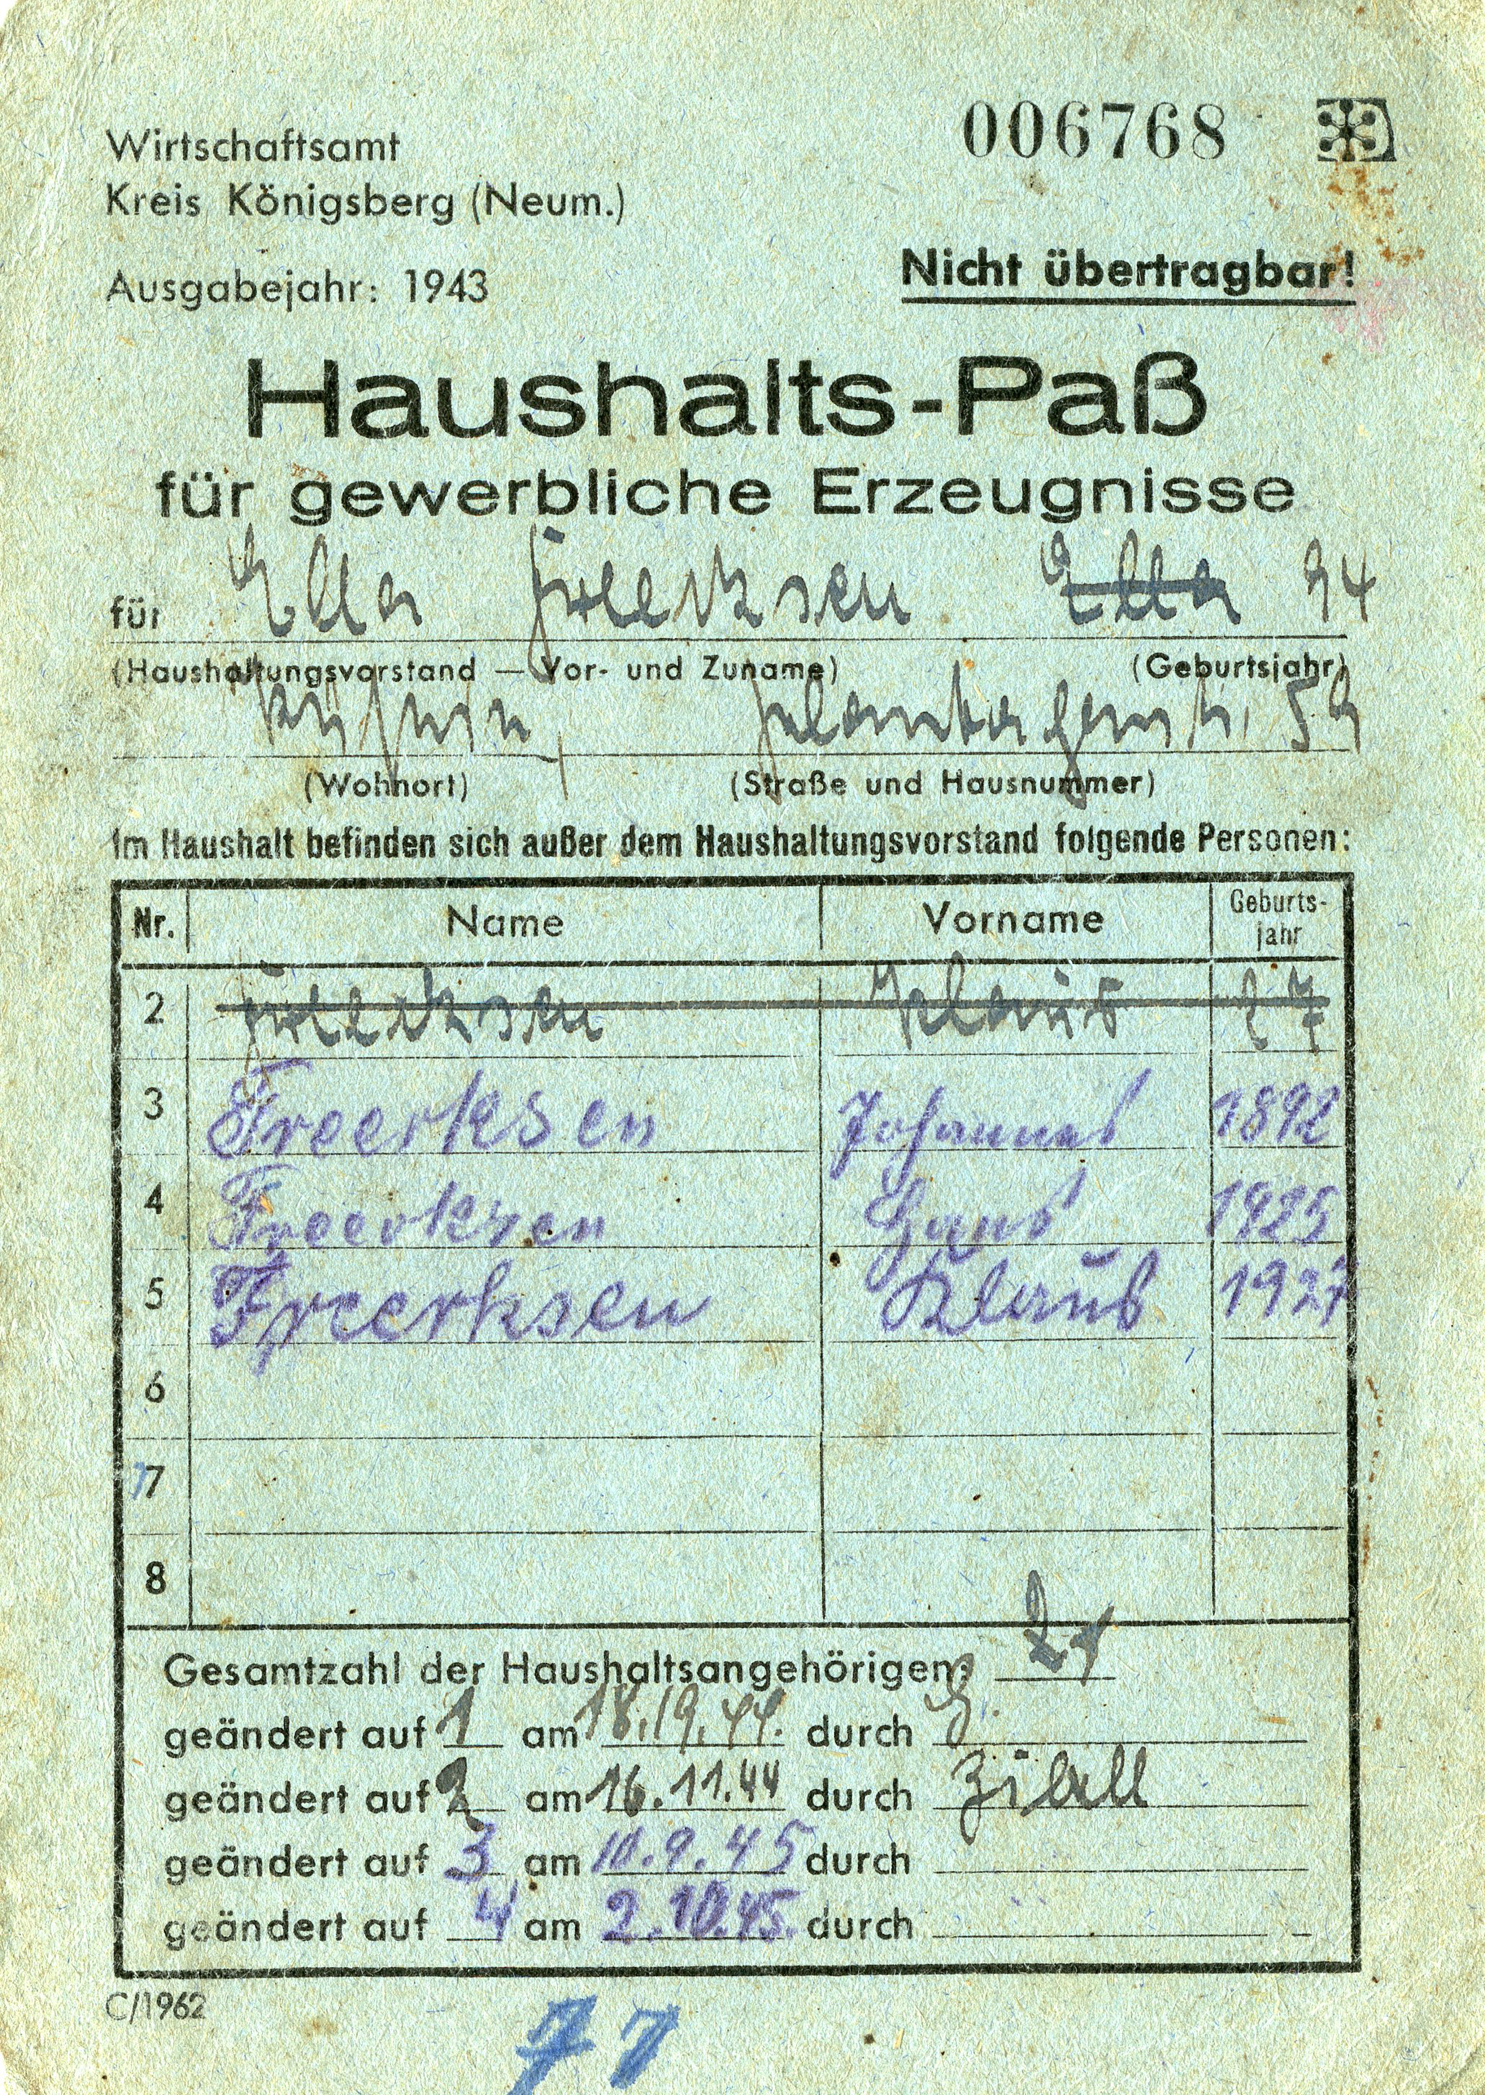 Wirtschaftsamt
Kreis Königsberg (Neum.)
006768
Ausgabejahr: 1943
Nicht übertragbar!
Haushalts-Paß
für gewerbliche Erzeugnisse
für Ella Freerksen Ella 94
(Haushaltungsvorstand — Vor- und Zuname) (Geburtsjahr)
Küstrin, Plantagenstr. 59
(Wohnort) (Straße und Hausnummer)
Im Haushalt befinden sich außer dem Haushaltungsvorstand folgende Personen:
Nr. Name Vorname Geburts-
jahr
2 Freerksen Klaus 27
3 Freerksen Johannes 1892
4 Freerksen Hans 1925
5 Freerksen Klaus 1927
6
7
8
Gesamtzahl der Haushaltsangehörigen: 2
geändert auf 1 am 18.19.44. durch
geändert auf 2 am 16.11.44 durch
geändert auf 3 am 10.9.45 durch
geändert auf 4 am 2.10.45. durch
C/1962
77